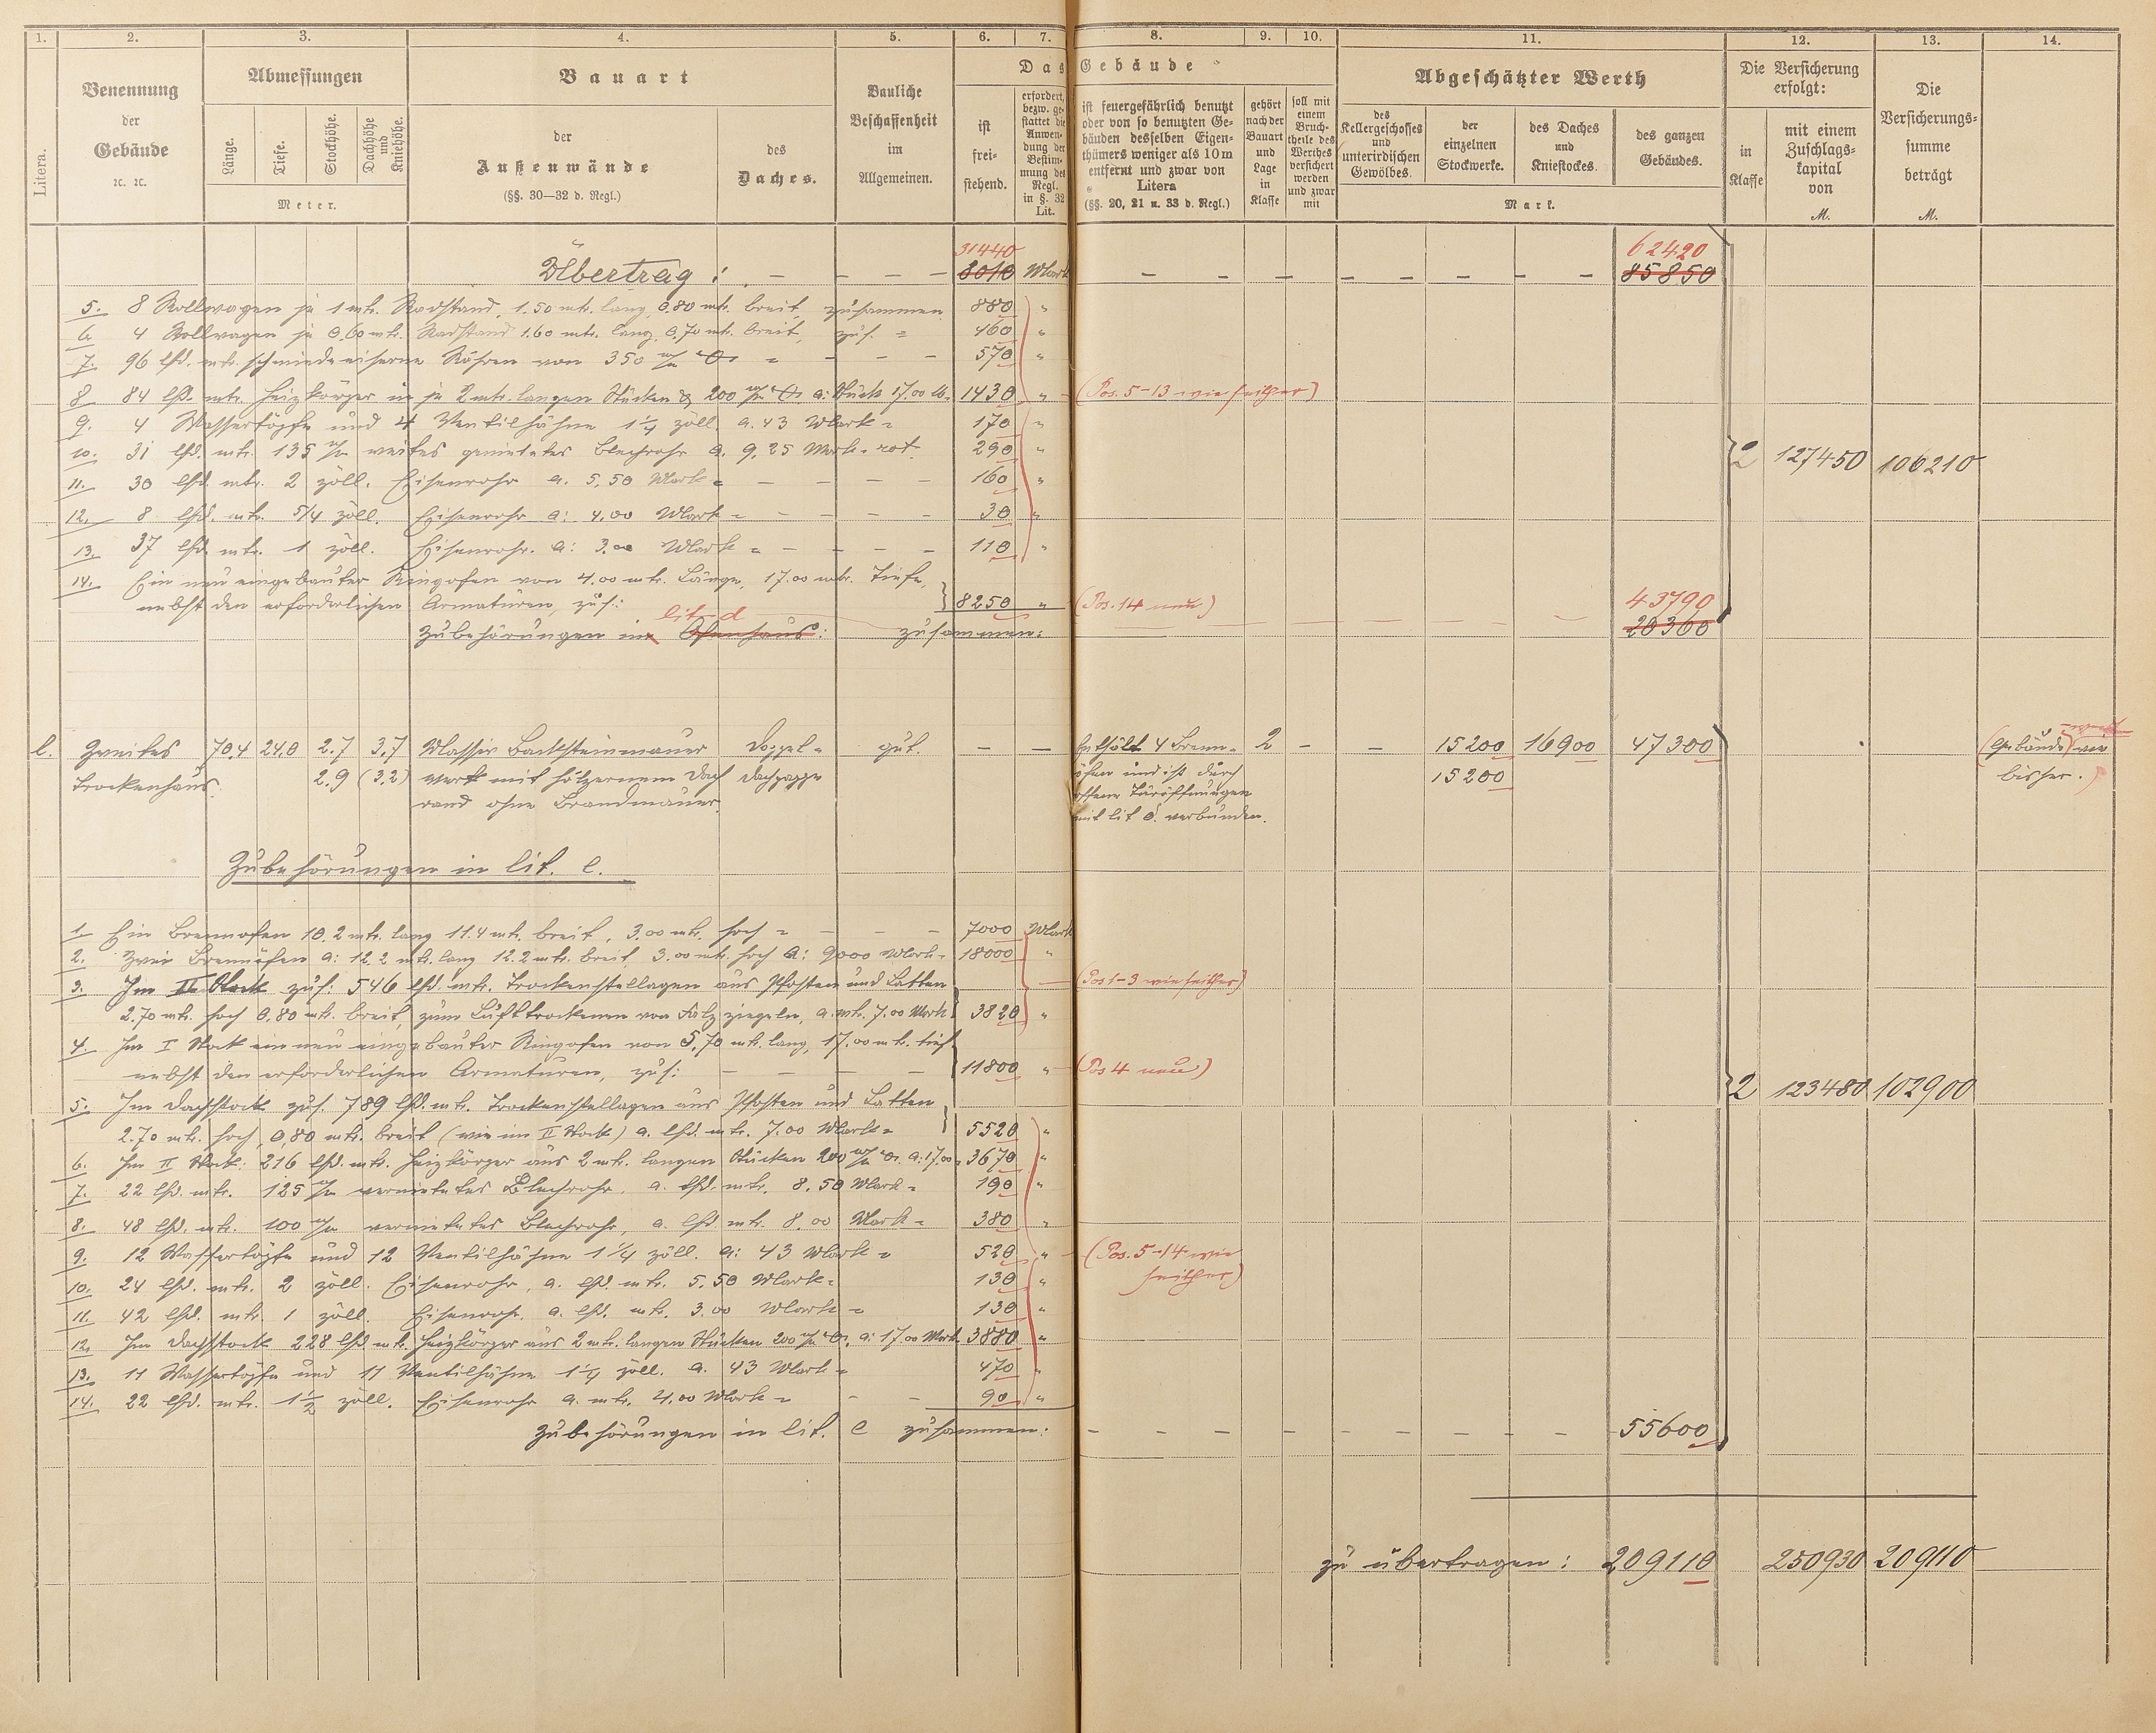 1. 2. 3. 4. 5. 6. 7. 8. 9. 10. 11. 12. 13. 14.
Litera.
Benennung
der
Gebäude
ꝛc. ꝛc.
Abmessungen
Länge.
Tiefe.
Stockhöhe.
Dachhöhe und Kniehöhe.
Meter.
Bauart
der
Außenwände
(§§. 30—32 d. Regl.)
des
Daches.
Bauliche
Beschaffenheit
im
Allgemeinen.
Das Gebäude
ist
frei-
stehend.
erfordert,
bezw. ge-
stattet die
Anwen-
dung der
Bestim-
mung des
Regl.
in §. 32
Lit.
ist feuergefährlich benutzt
oder von so benutzten Ge-
bäuden desselben Eigen-
thümers weniger als 10 m
entfernt und zwar von
Litera
(§§. 20, 21 u. 33 d. Regl.)
gehört
nach der
Bauart
und
Lage
in
Klasse
soll mit
einem
Bruch-
theile des
Werthes
versichert
werden
und zwar
mit
Abgeschätzter Werth
des
Kellergeschosses
und
unterirdischen
Gewölbes.
der
einzelnen
Stockwerke.
des Daches
und
Kniestockes.
des ganzen
Gebäudes.
Mark.
Die Versicherung
erfolgt:
in
Klasse
mit einem
Zuschlags-
kapital
von
M.
Die
Versicherungs-
summe
beträgt
M.
31440 62420
Übertrag: – – – – 8010 Mark – – – – – – – – 85850
5. 8 Rollwagen je 1 mtr. Radstand, 1.50 mtr. lang, 0.80 mtr. breit, zusammen 880 "
6. 4 Rollwagen je 0,60 mtr. Radstand 1.60 mtr. lang, 0,70 mt. breit, zus. = 460 "
7. 96 lfd. mtr. schmiedeiserne Röhren von 350 m/m = – – – 570 "
8. 84 lfd. mtr. Heizkörper in je 2 mtr. langen Stücken 200 m/m a: Stück 17.00 M. 1430 " (Pos. 5–13 wie seither)
9. 4 Wassertöpfe und 4 Ventilhähne 1 1/4 zöll. a. 43 Mark = 170 "
10. 31 lfd. mtr. 135 m/m weites genietetes Blechrohr a. 9,25 Mark = rot. 290 " 2 127450 106210
11. 30 lfd. mtr. 2 zöll. Eisenrohr a. 5,50 Mark = – – – – 160 "
12. 8 lfd. mtr. 5/4 zöll. Eisenrohr a: 4,00 Mark = – – – – 30 "
13. 37 lfd. mtr. 1 zöll. Eisenrohr. a: 3.00 Mark = – – – – 110 "
14. Ein neu eingebauter Ringofen von 4.00 mtr. Länge, 17.00 mtr. Tiefe,
nebst den erforderlichen Armaturen, zus.: 8250 " (Pos. 14 neu) 43790
lit. d
Zubehörungen im Ofenhaus: zusammen: 20360
e. Zweites 70.4 24.0 2.7 3.7 Massiv Backsteinmauer Doppel= gut. – – Enthält 4 Brenn- 2 – – 15200 16900 47300 (Gebäude wie
Trockenhaus. 2.9 (3.2) werk mit hölzernem Dach dachpappe öfen und ist durch 15200 bisher.)
rand ohne Brandmauer. offene Türöffnungen
mit lit d. verbunden.
Zubehörungen in lit. e.
1. Ein Brennofen 10.2 mtr. lang 11.4 mtr. breit, 3.00 mtr. hoch = – – – 7000 Mark
2. Zwei Brennöfen a: 12.2 mtr. lang 12.2 mtr. breit, 3.00 mtr. hoch a: 9000 Mark = 18000 "
3. Im II Stock zus: 546 lfd. mtr. Trockenstellagen aus Pfosten und Latten (Pos 1–3 wie seither)
2.70 mtr. hoch 0,80 mtr. breit, zum Lufttrocknen von Falzziegeln, a. mtr. 7.00 Mark 3820 "
4. Im I Stock ein neu eingebauter Ringofen von 5,70 mtr. lang, 17.00 mtr. tief
nebst den erforderlichen Armaturen, zus: – – – – 11800 " (Pos 4 neu)
5. Im Dachstock zus. 789 lfd. mtr. Trockenstellagen aus Pfosten und Latten 2 123480 102900
2.70 mtr. hoch, 0,80 mtr. breit (wie im II Stock) a. lfd. mtr. 7.00 Mark = 5520 "
6. Im II Stock: 216 lfd. mtr. Heizkörper aus 2 mtr. langen Stücken 200 m/m a: 17.00 = 3670 "
7. 22 lfd. mtr. 125 m/m vernietetes Blechrohr, a. lfd. mtr. 8.50 Mark = 190 "
8. 48 lfd. mtr. 100 m/m vernietetes Blechrohr, a. lfd. mtr. 8.00 Mark = 380 "
9. 12 Wassertöpfe und 12 Ventilhähne 1 1/4 zöll. a: 43 Mark = 520 " (Pos. 5–14 wie
10. 24 lfd. mtr. 2 zöll. Eisenrohr, a. lfd. mtr. 5,50 Mark = 130 " seither)
11. 42 lfd. mtr. 1 zöll. Eisenrohr. a. lfd. mtr. 3.00 Mark = 130 "
12. Im Dachstock 228 lfd. mtr. Heizkörper aus 2 mtr. langen Stücken 200 m/m a: 17.00 Mark 3880 "
13. 11 Wassertöpfe und 11 Ventilhähne 1 1/4 zöll. a. 43 Mark = 470 "
14. 22 lfd. mtr. 1 1/2 zöll. Eisenrohr a. mtr. 4.00 Mark = – – 90 "
Zubehörungen in lit. e zusammen: – – – – – – – – – 55600
zu übertragen: 209110 250930 209110